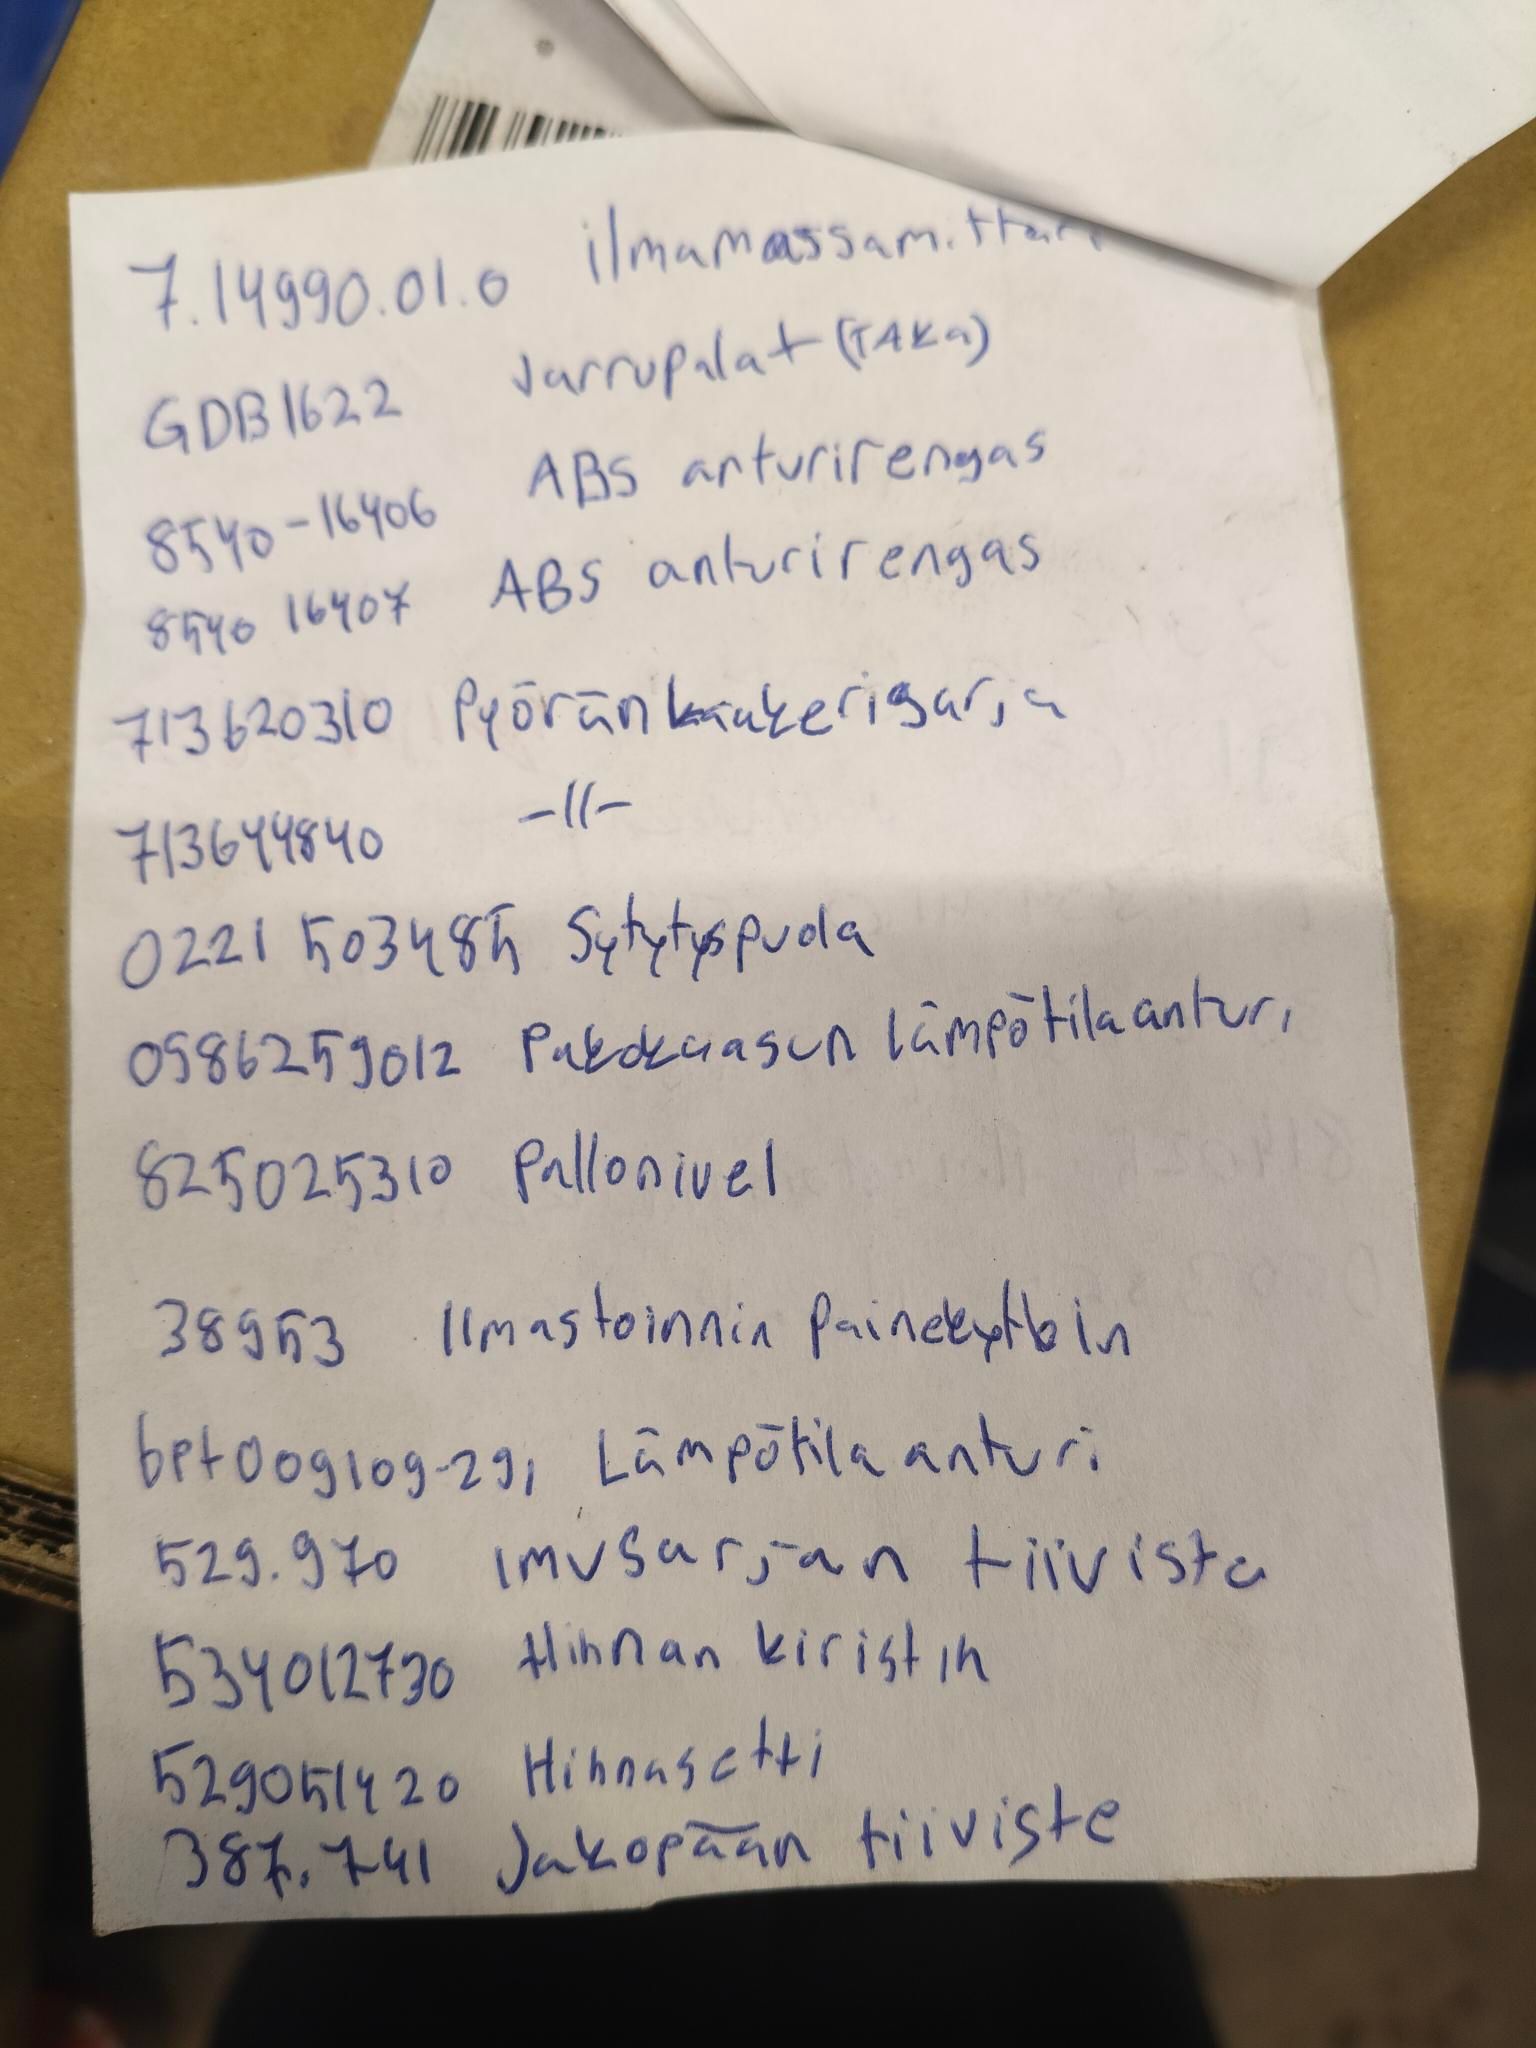 7.14990.01.0 ilmamassamittari
GDB1622 Jarrupalat (TAKA)
8540-16406 ABS anturirengas
8540 16407 ABS anturirengas
713620310 Pyöränlaakerisarja
713644840 -//-
0221 503485 Sytytyspuola
0986259012 Pakokaasun lämpötilaanturi
825025310 Pallonivel
38953 Ilmastoinnin Painekytkin
bpt009109-29, Lämpötilaanturi
529.970 imusarjan tiivista
534012730 Hihnan kiristin
529051420 Hihnasetti
387.741 Jakopään tiiviste